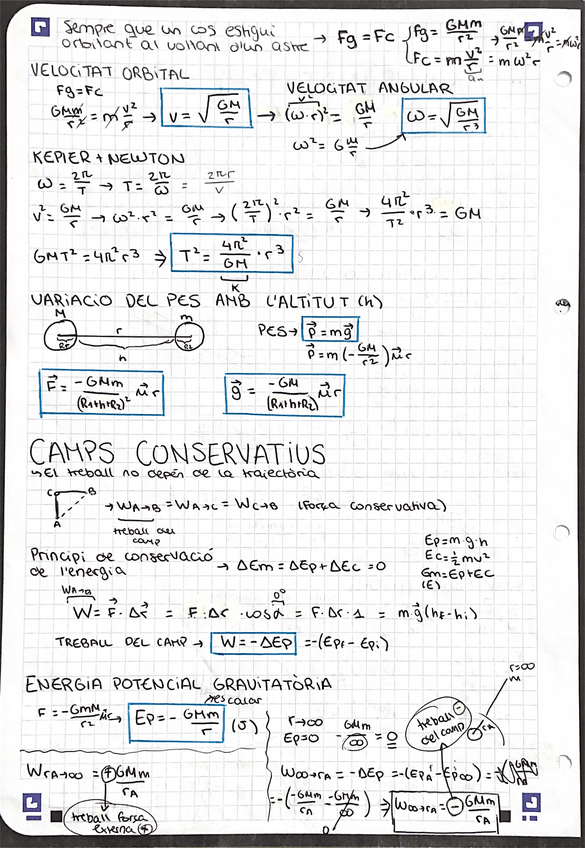 Sempre que un cos estigui → Fg = Fc { Fg = GMm/r² → GMm/r² = m v²/r = mω²r
orbitant al voltant d'un astre Fc = m v²/r = mω²r
an
VELOCITAT ORBITAL
Fg = Fc
GMm/r² = m v²/r → v = √(GM/r) →
VELOCITAT ANGULAR
v²
(ω·r)² = GM/r
ω = √(GM/r³)
ω² = GM
KEPLER + NEWTON
ω = 2π/T → T = 2π/ω = 2πr/v
v² = GM/r → ω²·r² = GM/r → (2π/T)²·r² = GM/r → 4π²/T²·r³ = GM
GMT² = 4π²r³ ⇒ T² = 4π²/GM · r³
K
VARIACIO DEL PES AMB L'ALTITUT (h)
M r m
h
PES → p = mg
p = m(-GM/r²) μr
F = -GMm/(R1+h+R2)² μr
g = -GM/(R1+h+R2)² μr
CAMPS CONSERVATIUS
↳ El treball no depèn de la trajectòria
C B
A
→ WA→B = WA→C = WC→B (Força conservativa)
treball del
camp
Principi de conservació
de l'energia → ΔEm = ΔEp + ΔEc = 0
Ep = m·g·h
Ec = ½mv²
Em = Ep + Ec
(E)
WA→B
W = F·Δr = F·Δr·cosα = F·Δr·1 = m·g(hf - hi)
0°
TREBALL DEL CAMP → W = -ΔEp = -(Epf - Epi)
ENERGIA POTENCIAL GRAVITATÒRIA
escalar
F = -GMm/r² μr → Ep = - GMm/r (J)
r→∞
Ep = 0 - GMm/∞ = 0
treball
del camp -
rA
r=∞
m
WrA→∞ = + GMm/rA
treball força
externa +
W∞→rA = -ΔEp = -(EpA - Ep∞) =
= -(-GMm/rA - -GMm/∞) ⇒ W∞→rA = - GMm/rA
0